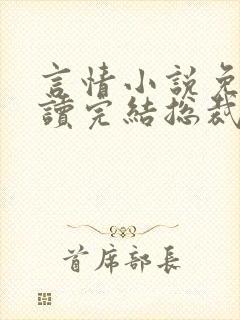 言情小說免
讀完結总裁
首席部長